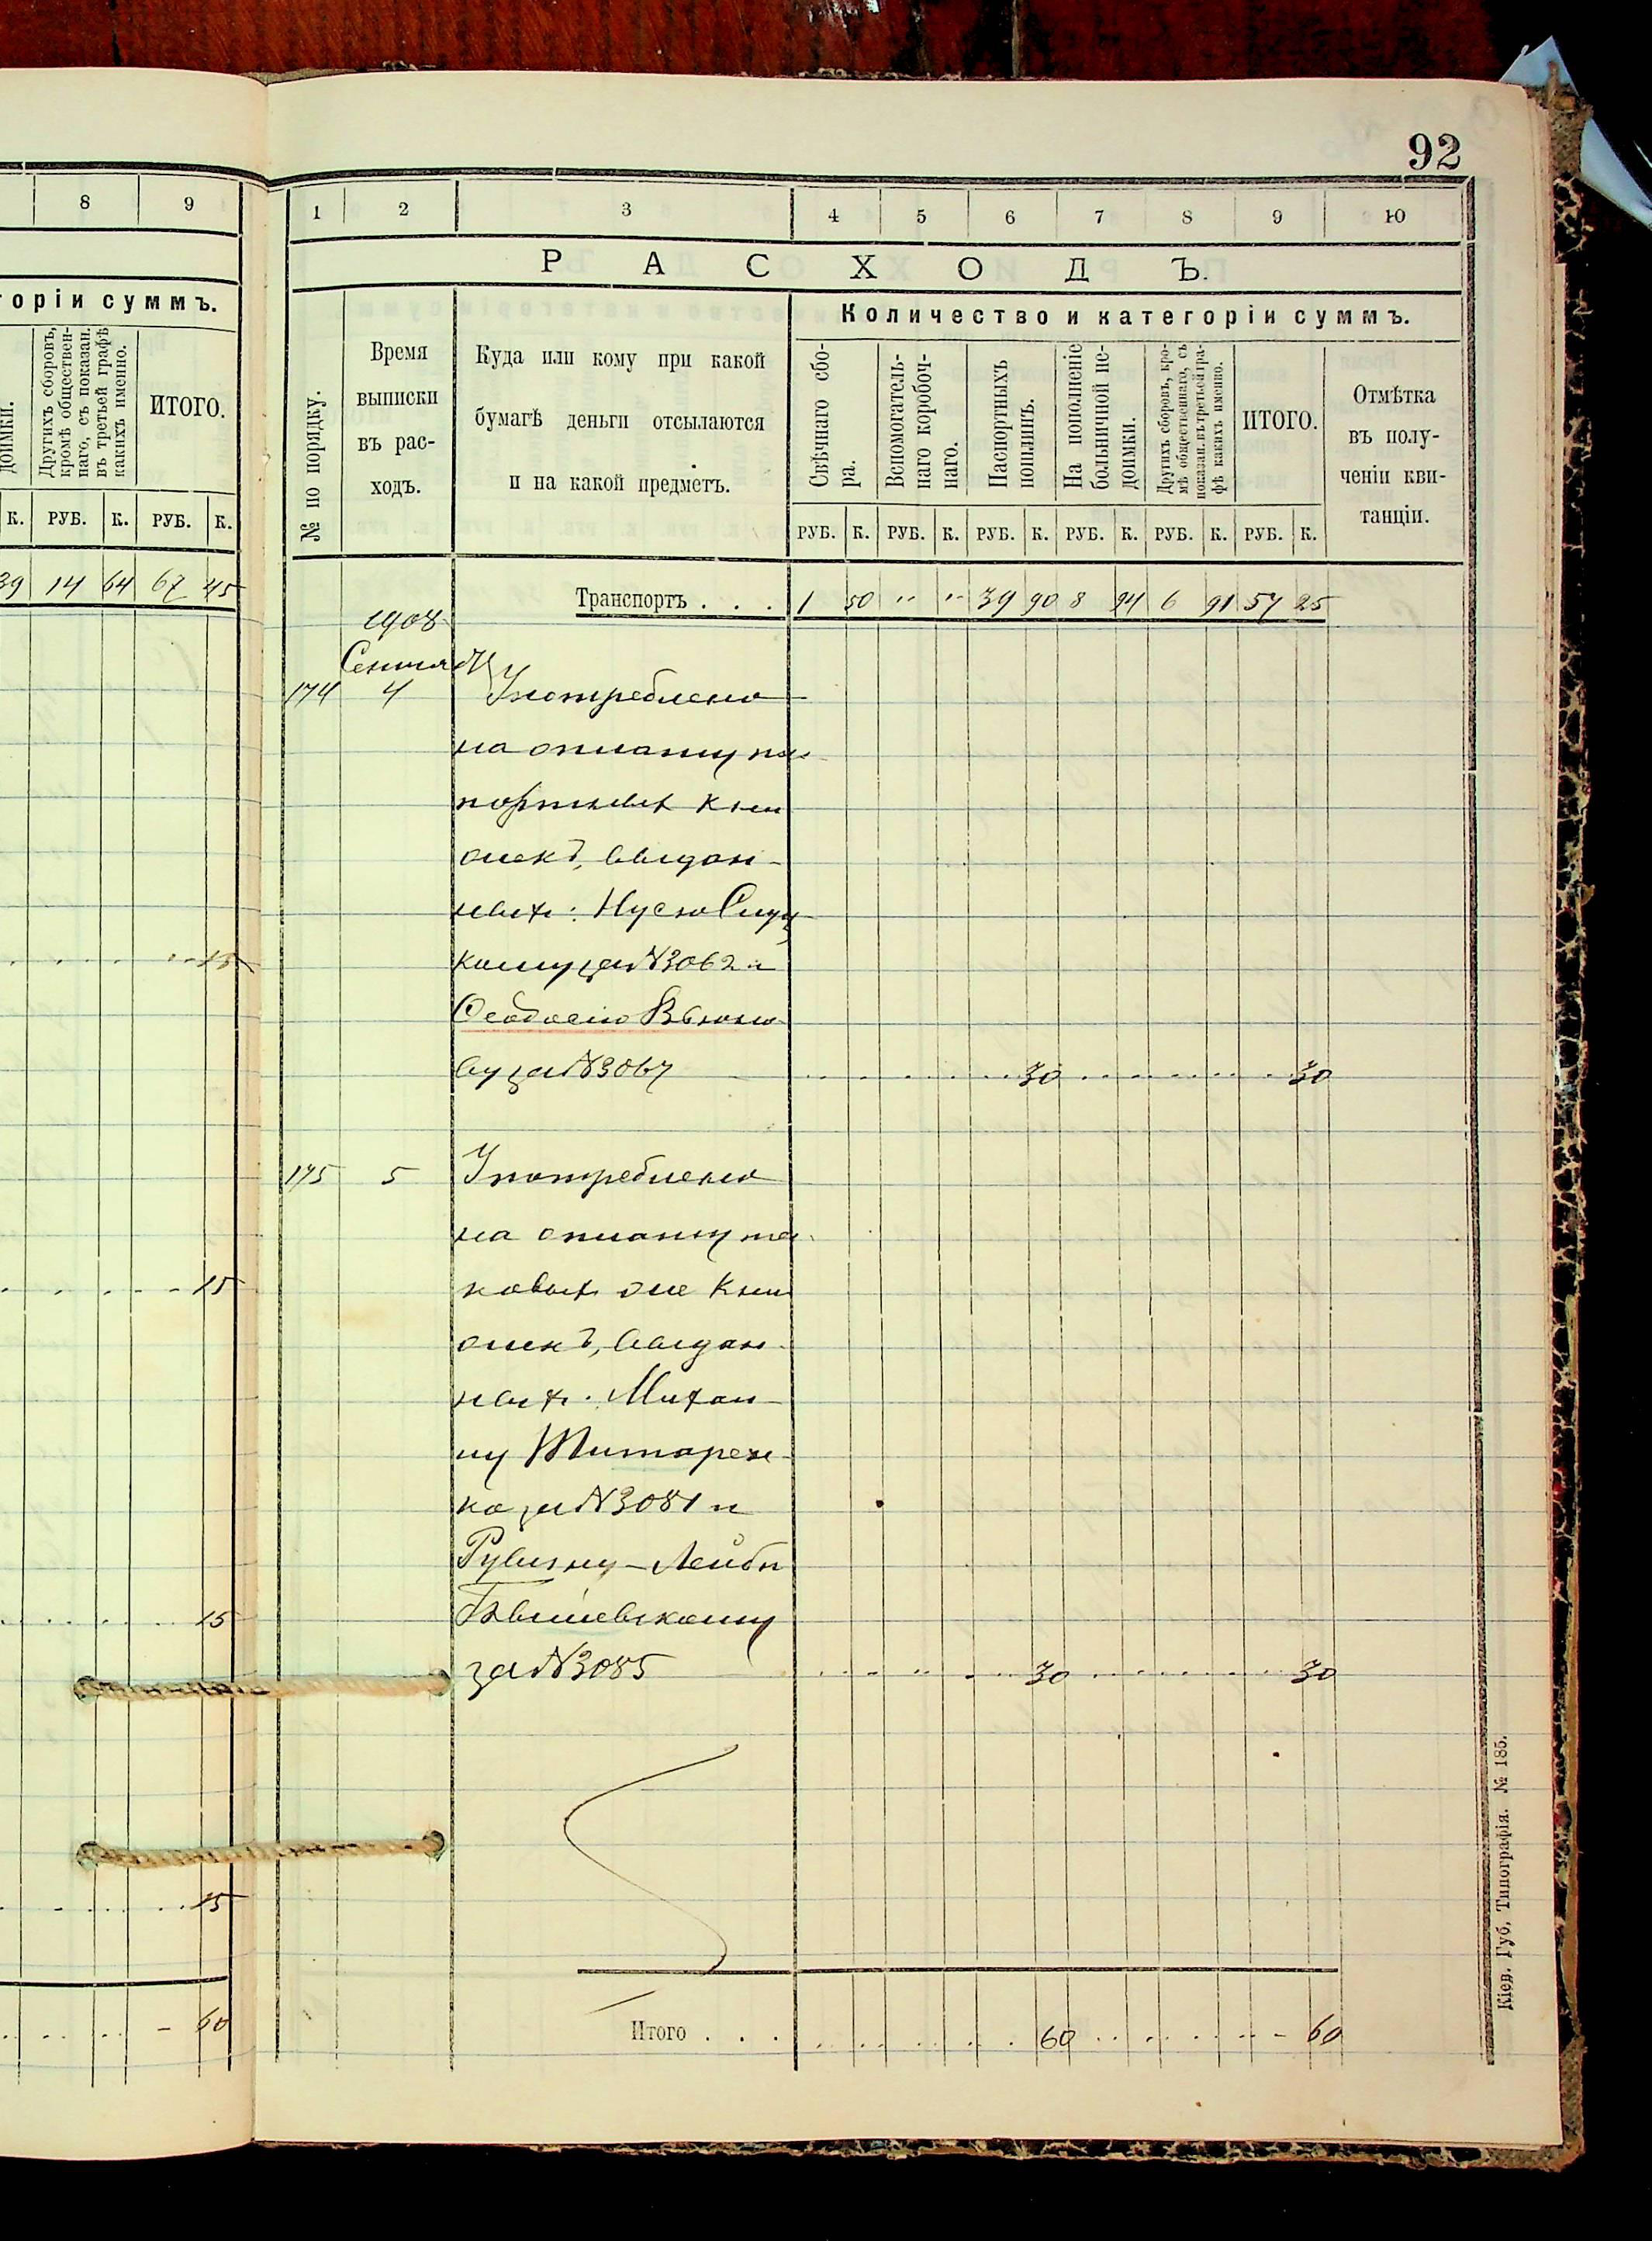 92
8 9
горіи суммъ.
доимки.
Другихъ сборовъ,
кромѣ обществен-
наго, съ показан.
въ третьей графѣ
какихъ именно.
ИТОГО.
К. РУБ. К. РУБ. К.
39 14 64 67 45
15
15
15
15
60
1 2 3 4 5 6 7 8 9 10
РАСХОДЪ.
№ по порядку.
Время
выписки
въ рас-
ходъ.
Куда или кому при какой
бумагѣ деньги отсылаются
и на какой предметъ.
Количество и категоріи суммъ.
Свѣчнаго сбо-
ра.
Вспомогатель-
наго коробоч-
наго.
Паспортныхъ
пошлинъ.
На пополненіе
больничной не-
доимки.
Другихъ сборовъ, кро-
мѣ общественнаго, съ
показан. въ третьей гра-
фѣ какихъ именно.
ИТОГО.
Отмѣтка
въ полу-
ченіи кви-
танціи.
РУБ. К. РУБ. К. РУБ. К. РУБ. К. РУБ. К. РУБ. К.
Транспортъ . . . 1 50 " " 39 90 8 94 6 91 57 25
1908
Сентяб
174 4 Употреблено
на оплату пас
портныхъ кни
жекъ, выдан-
ныхъ:
кому за №3062 и
Феодосію Вьюно
ву за №3067 30 30
175 5 Употреблено
на оплату та
ковыхъ же кни
жекъ, выдан-
ныхъ: Михаи
лу Титарен-
ко за №3081 и
Рувину-Лейбѣ
за №3085 30 30
Итого . . . 60 60
Кіев. Губ. Типографія. № 185.